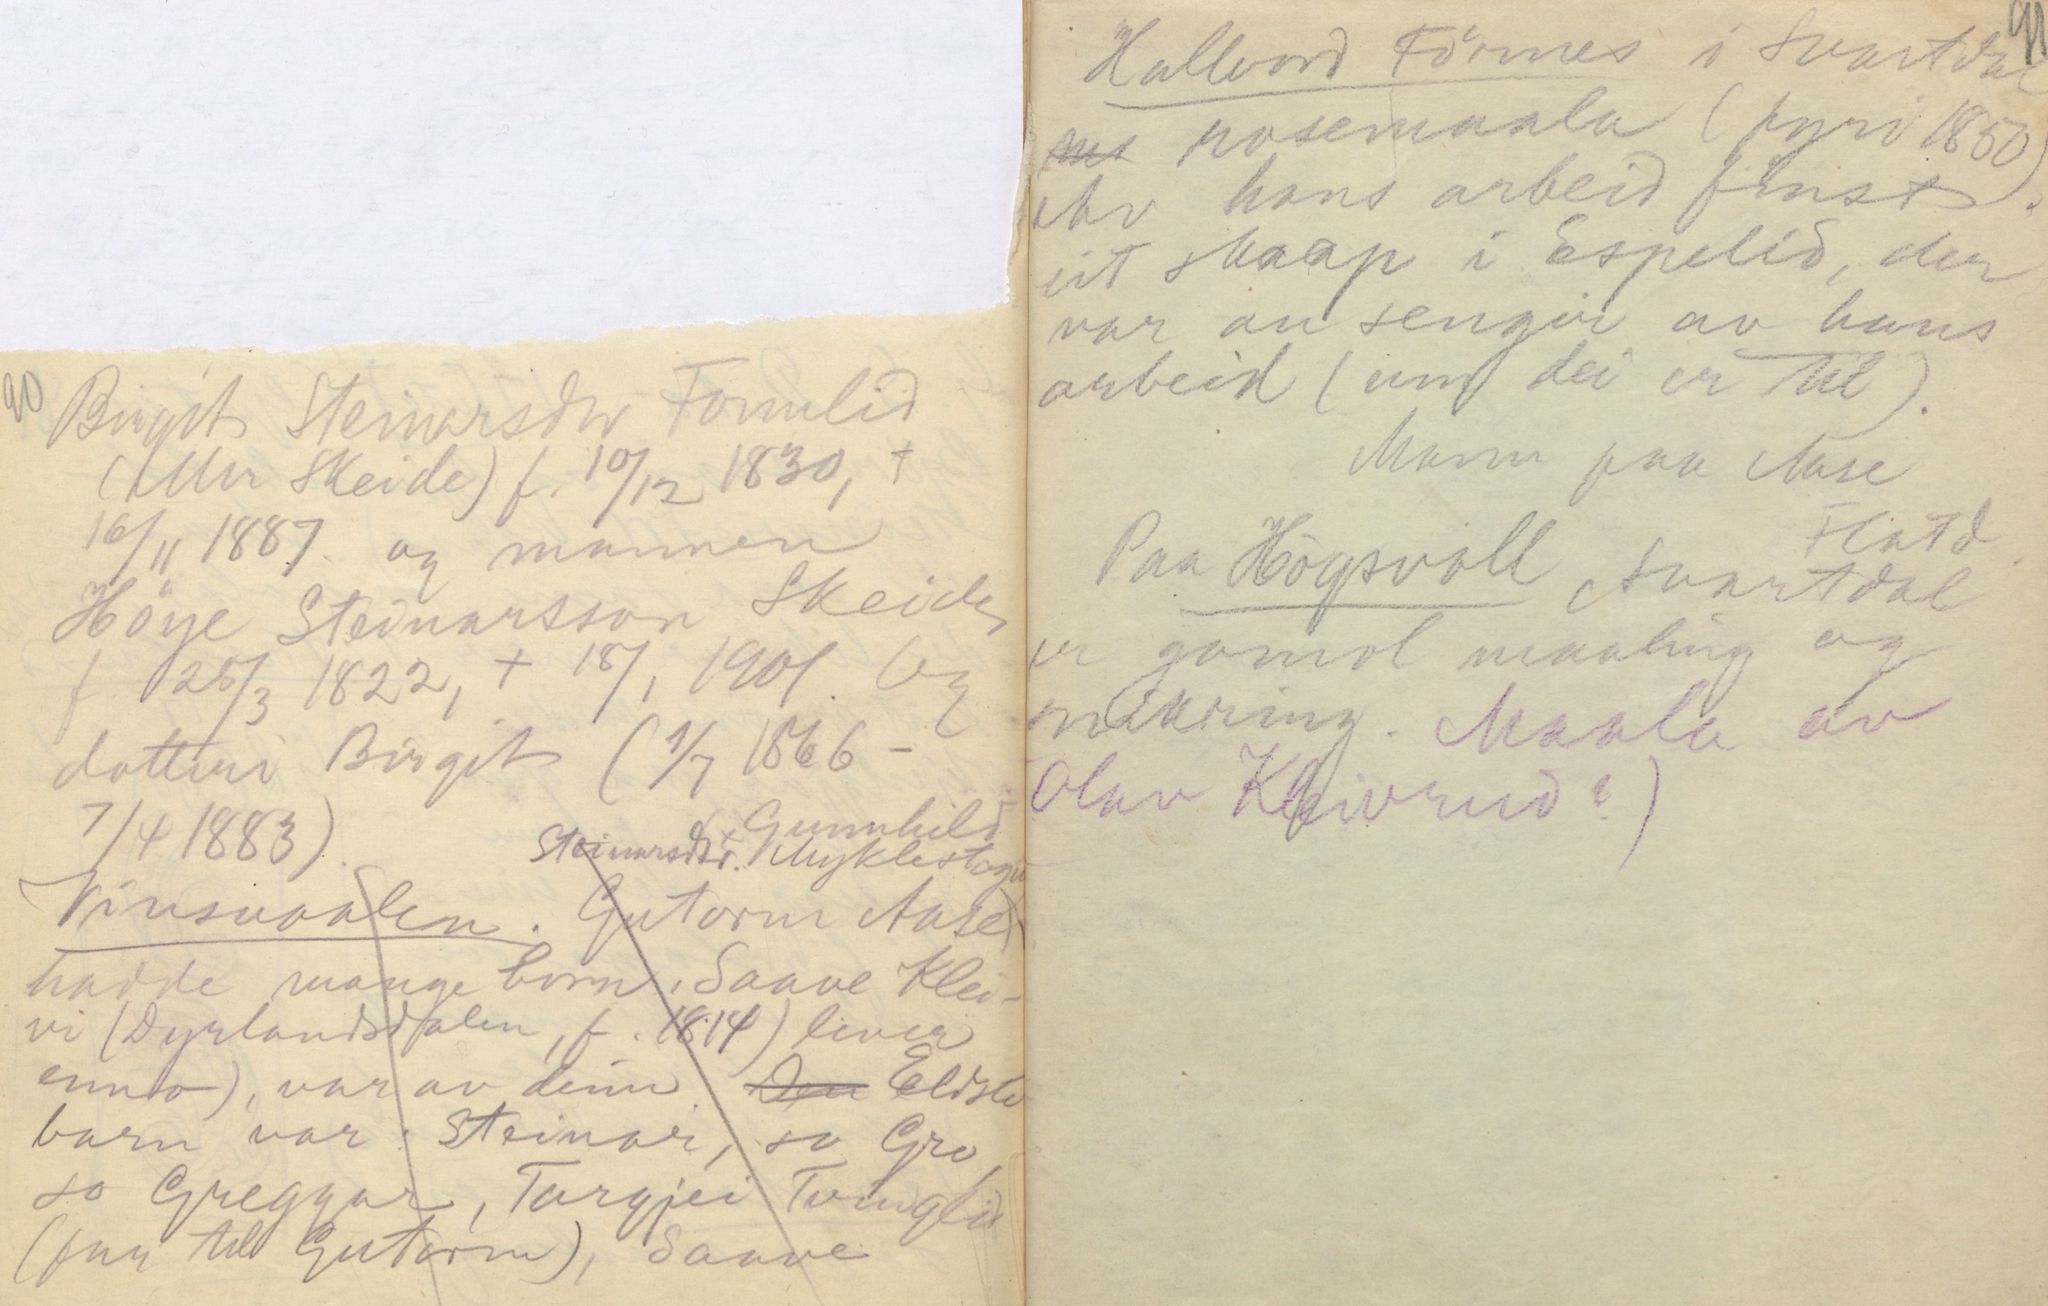 90
Birgit Steinarsdtr Fornlid
(Uller Skeide) f. 10/12 1830, +
16/11 1887. og mannen
Höye Steinarsson Skeide
f. 25/3 1822, + 18/1 1901. Og
dotteri Birgit (1/7 1866 -
7/4 1883).
(Gunnhild
Steinarsdtr. Myklestogu
Vinsvaalen. Gutorm Aase)
hadde mange born, Saave Klei-
vi (Dyrlandsdalen, f. 1814) liver
enno), var av deim. Den Eldste
barn var: Steinar, so Gro,
so Greggar, Targjei Tvinglid
(far til Gutorm), Saave
91
Hallvord Förnes i Svartdal
rosemaala (fyri 1850).
Av hans arbeid finst
eit skaap i Espelid, der
var au sengir av hans
arbeid (um dei er til).
Mann paa Aase
Flatd.
Paa Högsvoll Svartdal
er gamol maaling og
snikring. Maala av
Olav Kleivrud?)